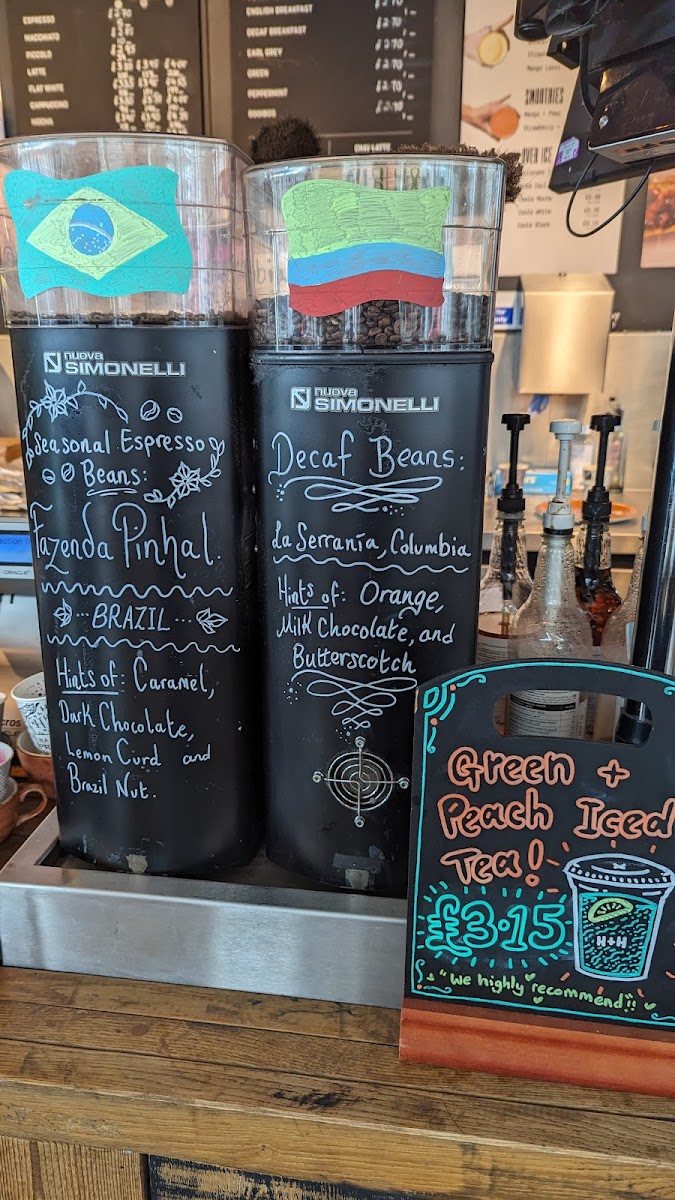 ESPRESSO
MACCHIATO
PICCOLO
LATTE
FLAT WHITE
CAPPUCCINO
MOCHA
ENGLISH BREAKFAST
DECAF BREAKFAST £2.70
EARL GREY £2.70
GREEN £2.70
PEPPERMINT £2.70
ROOIBOS £2.70
CHAI LATTE
SMOOTHIES
OVER ICE
nuova
SIMONELLI
Seasonal Espresso
Beans:
Fazenda Pinhal.
BRAZIL
Hints of: Caramel,
Dark Chocolate,
Lemon Curd and
Brazil Nut.
nuova
SIMONELLI
Decaf Beans:
La Serranía, Columbia
Hints of: Orange,
Milk Chocolate, and
Butterscotch
ORACLE
Green +
Peach Iced
Tea!
£3.15
H+H
"We highly recommend!!"